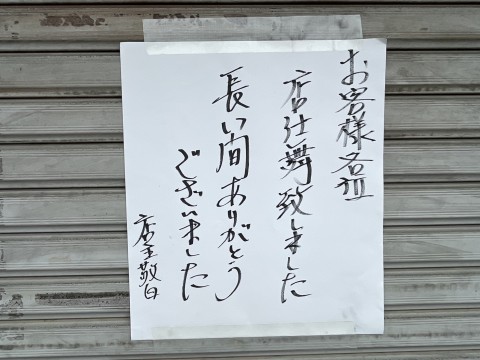 お客様各位
店仕舞致しました
長い間ありがとう
ございました
店主敬白